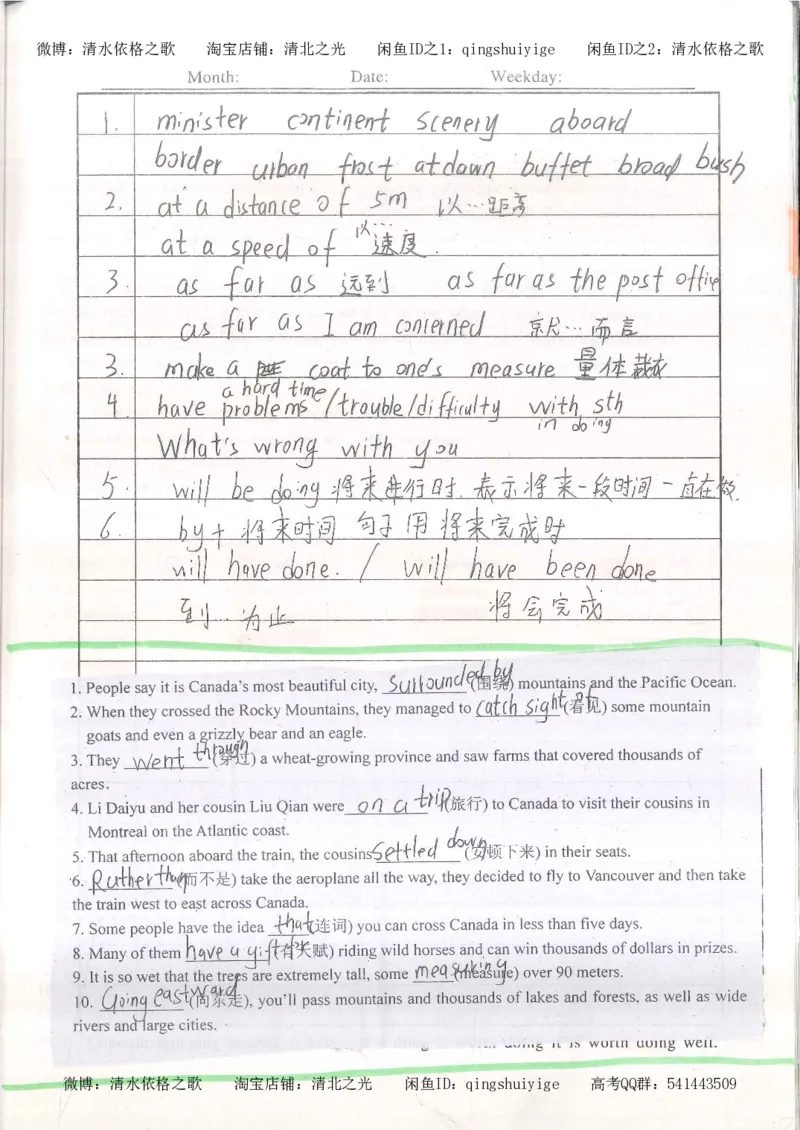 微博：清水依格之歌 淘宝店铺：清北之光 闲鱼ID之1：qingshuiyige 闲鱼ID之2：清水依格之歌
Month: Date: Weekday:
1. minister continent scenery aboard
border urban frost at dawn buffet broad bush
2. at a distance of 5m 以…距离
at a speed of 以…速度.
3. as far as 远到 as far as the post office
as far as I am concerned 就…而言
3. make a coat to one's measure 量体裁衣
a hard time
4. have problems/trouble/difficulty with sth
in doing
What's wrong with you
5. will be doing 将来进行时. 表示将来一段时间一直在做.
6. by + 将来时间 句子用将来完成时
will have done. / will have been done
到…为止 将会完成
1. People say it is Canada's most beautiful city, surrounded by (围绕) mountains and the Pacific Ocean.
2. When they crossed the Rocky Mountains, they managed to catch sight of (看见) some mountain
goats and even a grizzly bear and an eagle.
3. They went through (穿过) a wheat-growing province and saw farms that covered thousands of
acres.
4. Li Daiyu and her cousin Liu Qian were on a trip (旅行) to Canada to visit their cousins in
Montreal on the Atlantic coast.
5. That afternoon aboard the train, the cousins settled down (安顿下来) in their seats.
6. Rather than (而不是) take the aeroplane all the way, they decided to fly to Vancouver and then take
the train west to east across Canada.
7. Some people have the idea that (连词) you can cross Canada in less than five days.
8. Many of them have a gift (有天赋) riding wild horses and can win thousands of dollars in prizes.
9. It is so wet that the trees are extremely tall, some measuring (measure) over 90 meters.
10. Going eastward (向东走), you'll pass mountains and thousands of lakes and forests, as well as wide
rivers and large cities.
doing it is worth doing well.
微博：清水依格之歌 淘宝店铺：清北之光 闲鱼ID：qingshuiyige 高考QQ群：541443509